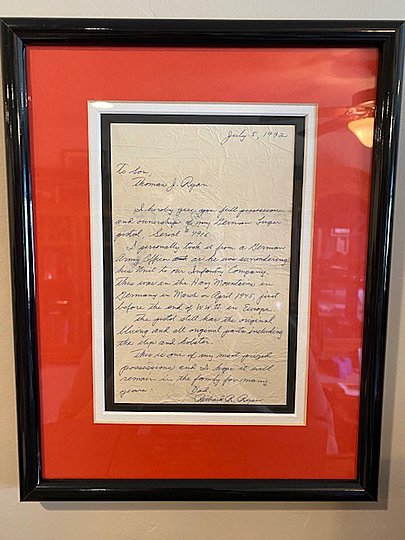 July 5, 1992
To Son,
Thomas J. Ryan
I hereby give you full possession
and ownership of my German Luger
pistol Serial # 9916.
I personally took it from a German
Army Officer as he was surrendering
his Unit to our Infantry Company.
this was in the Harz Mountains in
Germany in March or April 1945 just
before the end of WW II in Europe.
the pistol still has the original
bluing and all original parts including
the clip and holster.
this is one of my most prized
possessions and I hope it will
remain in the family for many
years.
Dad
R. Ryan